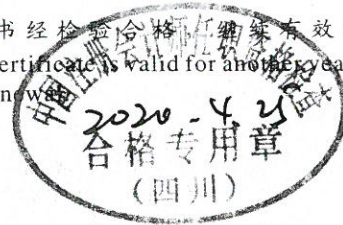 书经检验合格，继续有效
ertificate is valid for another yea
newal
中国注册会计师任职资格检查
2020-4.25
合格专用章
(四川)